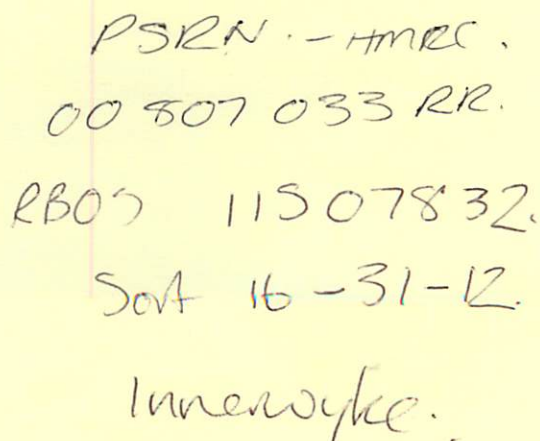 PSRN. - HMRC.
00 807 033 RR.
RBOS 11507832.
Sort 16-31-12.
Innerwyke.